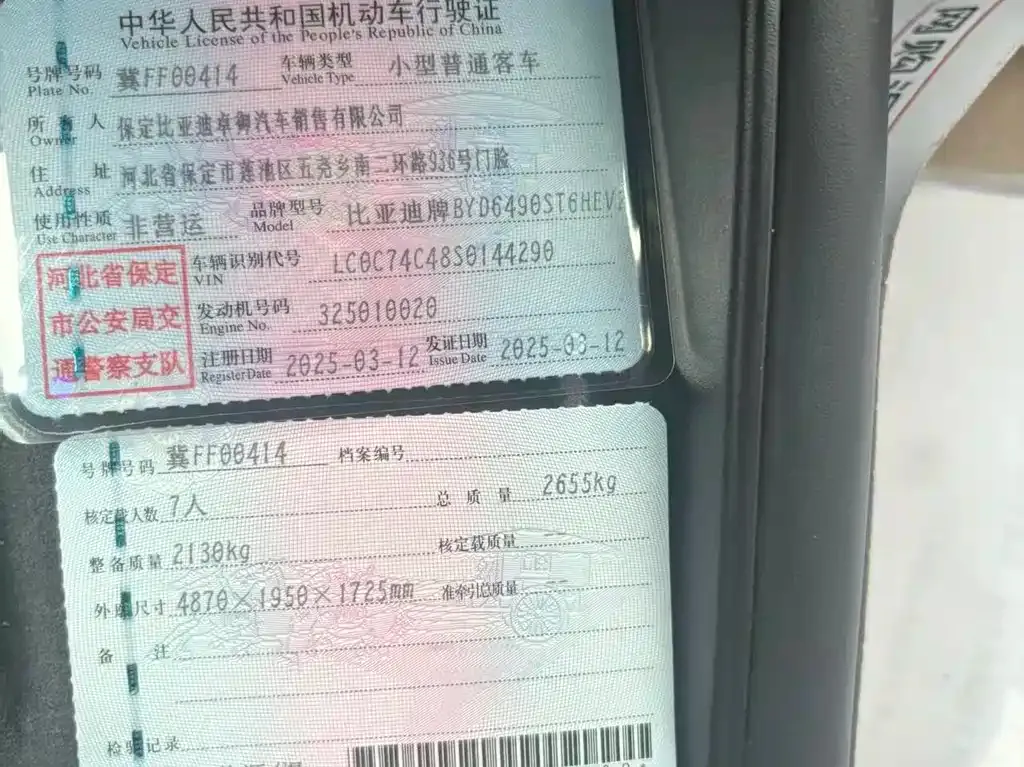 中华人民共和国机动车行驶证
Vehicle License of the People's Republic of China
号牌号码 冀FF00414 车辆类型 小型普通客车
Plate No. Vehicle Type
所有人 保定比亚迪卓御汽车销售有限公司
Owner
住址 河北省保定市莲池区五尧乡南二环路936号门脸
Address
使用性质 非营运 品牌型号 比亚迪牌BYD6490ST6HEV2
Use Character Model
河北省保定
市公安局交
通警察支队
车辆识别代号 LC0C74C48S0144290
VIN
发动机号码 325010020
Engine No.
注册日期 2025-03-12 发证日期 2025-03-12
Register Date Issue Date
号牌号码 冀FF00414 档案编号
核定载人数 7人 总质量 2655kg
整备质量 2130kg 核定载质量 --
外廓尺寸 4870×1950×1725mm 准牵引总质量 --
备注
检验记录